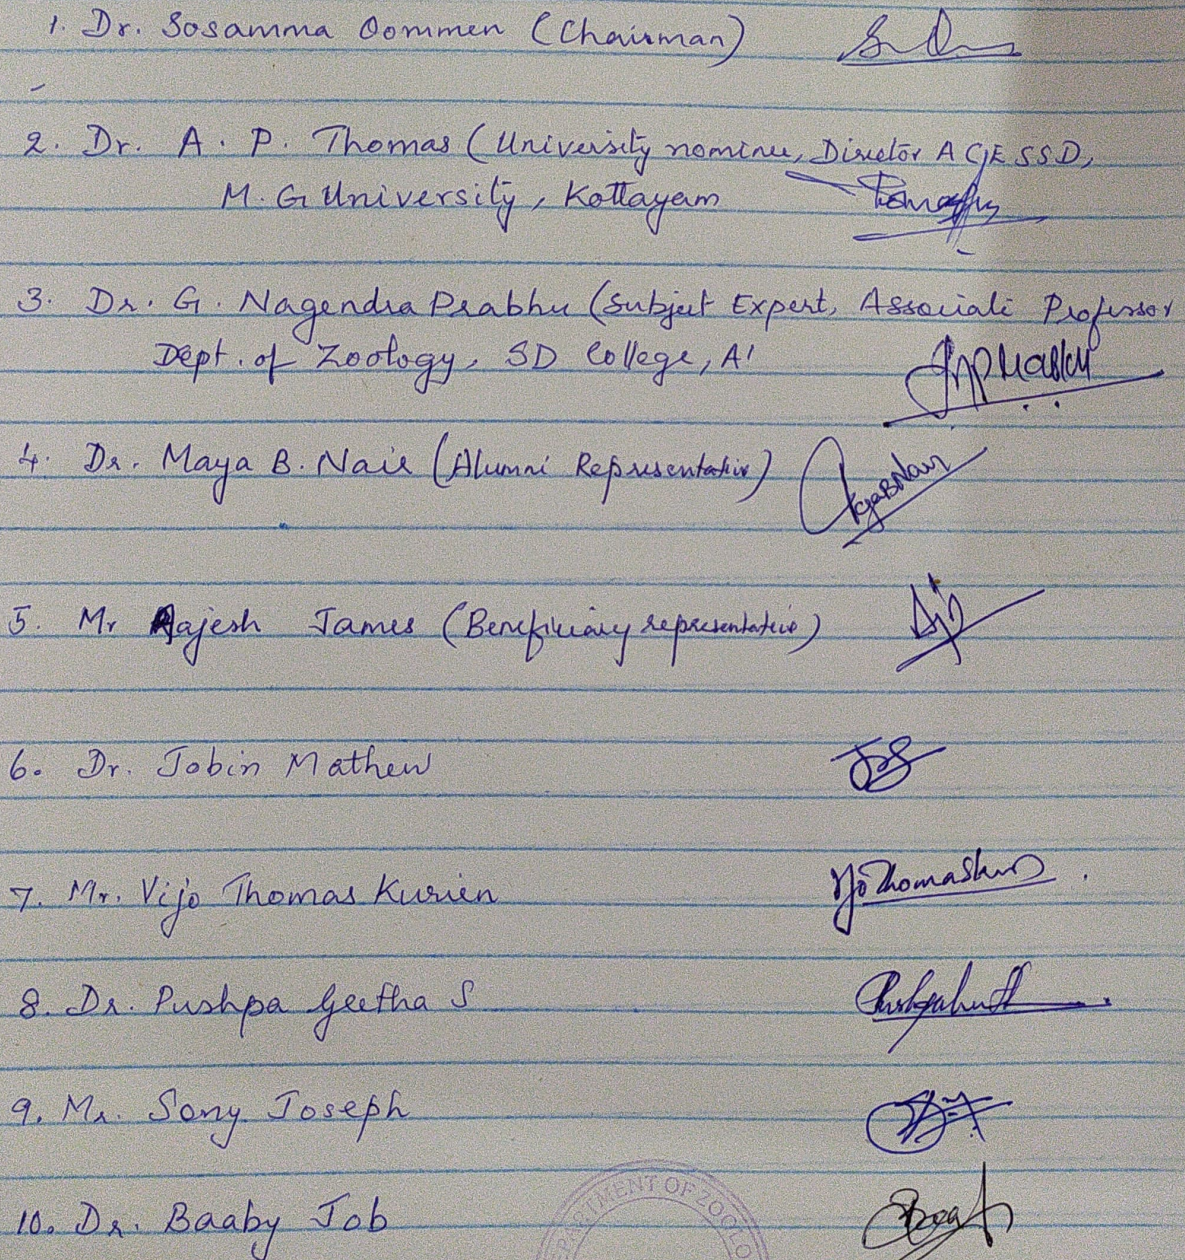 1. Dr. Sosamma Oommen (Chairman)
2. Dr. A. P. Thomas (University nominee, Director ACESSD,
M. G University, Kottayam
3. Dr. G. Nagendra Prabhu (Subject Expert, Associate Professor
Dept. of Zoology, SD College, Al
4. Dr. Maya B. Nair (Alumni Representative)
5. Mr Rajesh James (Beneficiary representative)
6. Dr. Jobin Mathew
7. Mr. Vijo Thomas Kurien
8. Dr. Pushpa Geetha S
9. Mr. Sony Joseph
10. Dr. Baaby Job